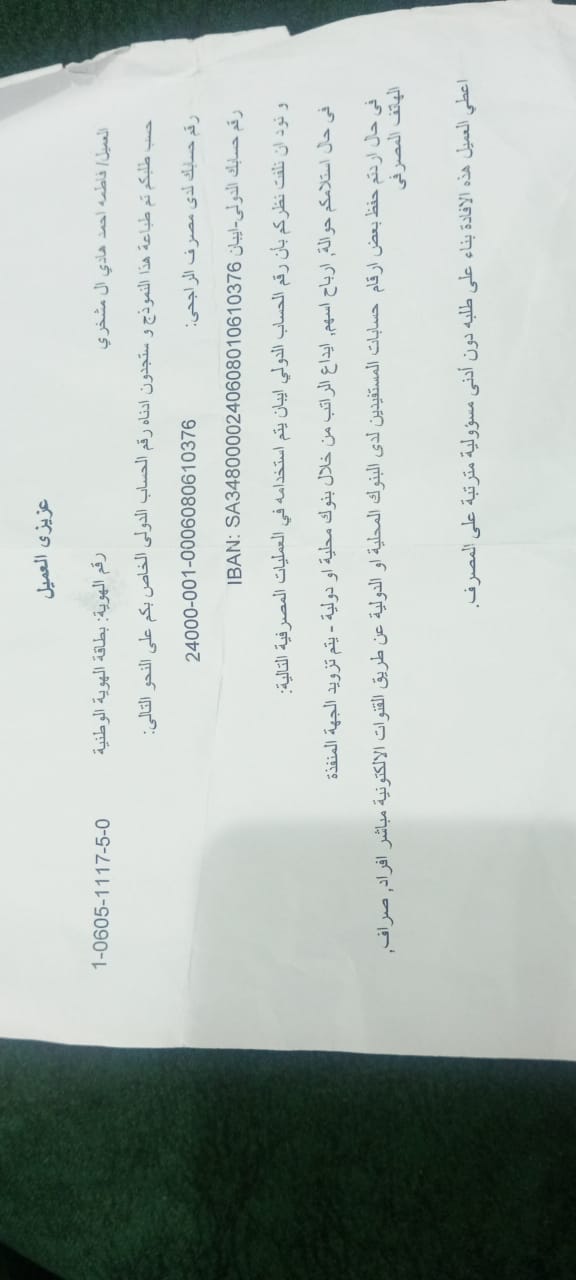 عزيزى العميل
العميل/ فاطمه احمد هادي ال مشخري رقم الهوية: بطاقة الهوية الوطنية 1-0605-1117-5-0
حسب طلبكم تم طباعة هذا النموذج و ستجدون ادناه رقم الحساب الدولى الخاص بكم على النحو التالى:
رقم حسابك لدى مصرف الراجحى: 24000-001-0006080610376
رقم حسابك الدولى-ايبان IBAN: SA3480000240608010610376
و نود ان نلفت نظركم بأن رقم الحساب الدولي ايبان يتم استخدامه في العمليات المصرفية التالية:
فى حال استلامكم حوالة, ارباح اسهم, ايداع الراتب من خلال بنوك محلية او دولية - يتم تزويد الجهة المنفذة
فى حال اردتم حفظ بعض ارقام حسابات المستفيدين لدى البنوك المحلية او الدولية عن طريق القنوات الالكتونية مباشر افراد, صراف,
الهاتف المصرفى
اعطي العميل هذه الافادة بناء على طلبه دون أدنى مسؤولية مترتبة على المصرف.